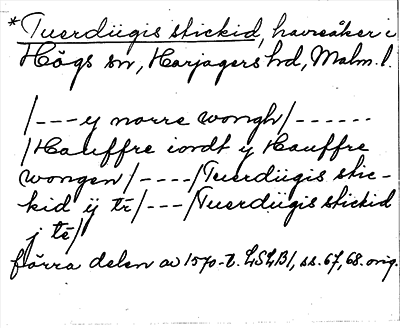 *Tuerdiigis stickid, havreåker i
Högs sn, Harjagers hd, Malm. l.
/---y norre wongh/------
/Hauffre iordt y Hauffre
wongen/----/Tuerdiigis stic-
kid ij tr/---/Tuerdiigis stickid
j te/
förra delen av 1570-t. LSLB1, ss. 67, 68. orig.